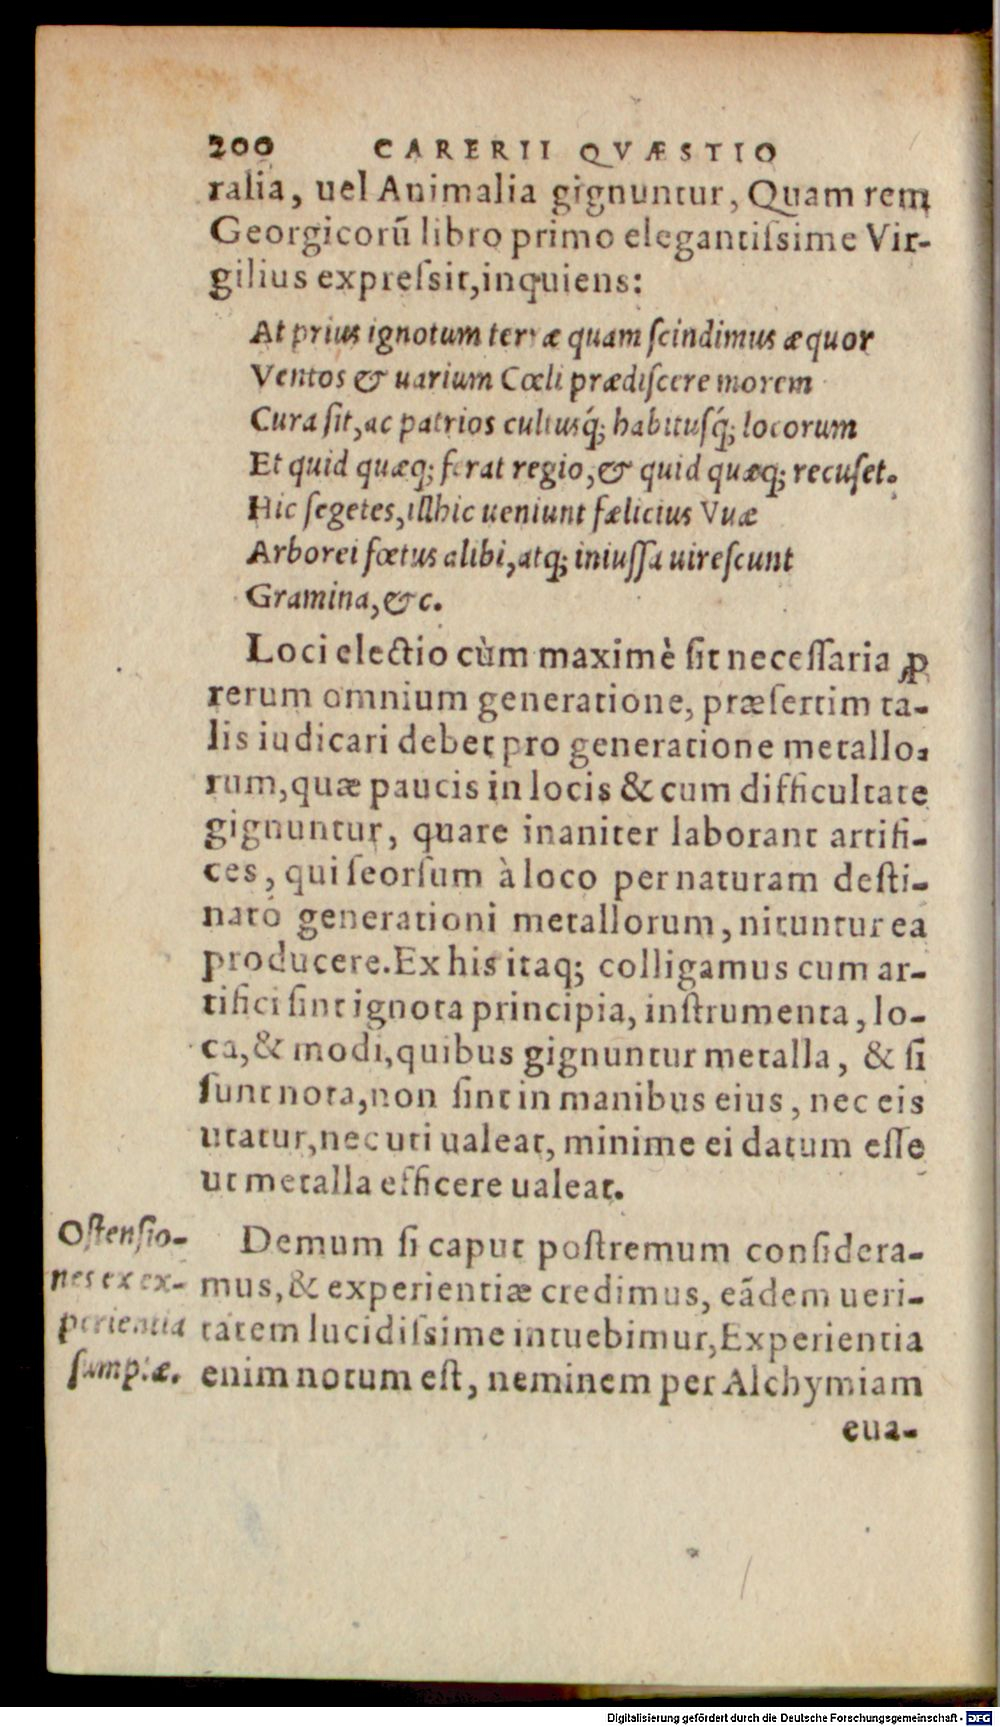 200 CARERII QVÆSTIO
ralia, uel Animalia gignuntur, Quam rem
Georgicorū libro primo elegantiſsime Vir-
gilius expreſsit,inquiens:
At prius ignotum terræ quam ſcindimus æquor
Ventos & uarium Cœli prædiſcere morem
Cura ſit,ac patrios cultusq́; habitusq́; locorum
Et quid quæq; ferat regio,& quid quæq; recuſet.
Hic ſegetes,illhic ueniunt fælicius Vuæ
Arborei fœtus alibi,atq; iniuſſa uireſcunt
Gramina,&c.
Loci electio cùm maximè ſit neceſſaria ꝓ
rerum omnium generatione, præſertim ta-
lis iudicari debet pro generatione metallo-
rum,quæ paucis in locis & cum difficultate
gignuntur, quare inaniter laborant artifi-
ces, qui ſeorſum à loco per naturam deſti-
nato generationi metallorum, nituntur ea
producere.Ex his itaq; colligamus cum ar-
tifici ſint ignota principia, inſtrumenta, lo-
ca,& modi,quibus gignuntur metalla, & ſi
ſunt nota,non ſint in manibus eius, nec eis
utatur,nec uti ualeat, minime ei datum eſſe
ut metalla efficere ualeat.
Oſtenſio-
nes ex ex-
perientia
ſumptæ.
Demum ſi caput poſtremum conſidera-
mus,& experientiæ credimus, eādem ueri-
tatem lucidiſsime intuebimur,Experientia
enim notum eſt, neminem per Alchymiam
eua-
Digitalisierung gefördert durch die Deutsche Forschungsgemeinschaft - DFG